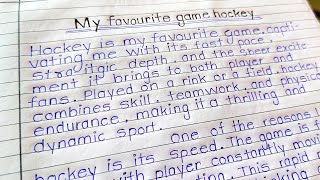 My favourite game hockey
Hockey is my favourite game. capti-
vating me with its fasty pace.
strategic depth. and the sheer excite
ment it brings to both player and
fans. Played on a rink or a field. hockey
combines skill. teamwork. and physical
endurance. making it a thrilling and
dynamic sport.
one of the reasons I
hockey is its speed. The game is f
with player constantly movi
This rapid